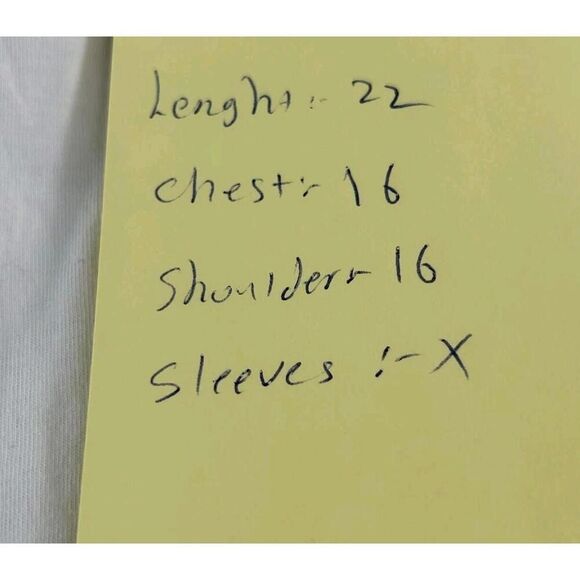 Lenght :- 22
Chest :- 16
Shoulder :- 16
Sleeves :- X